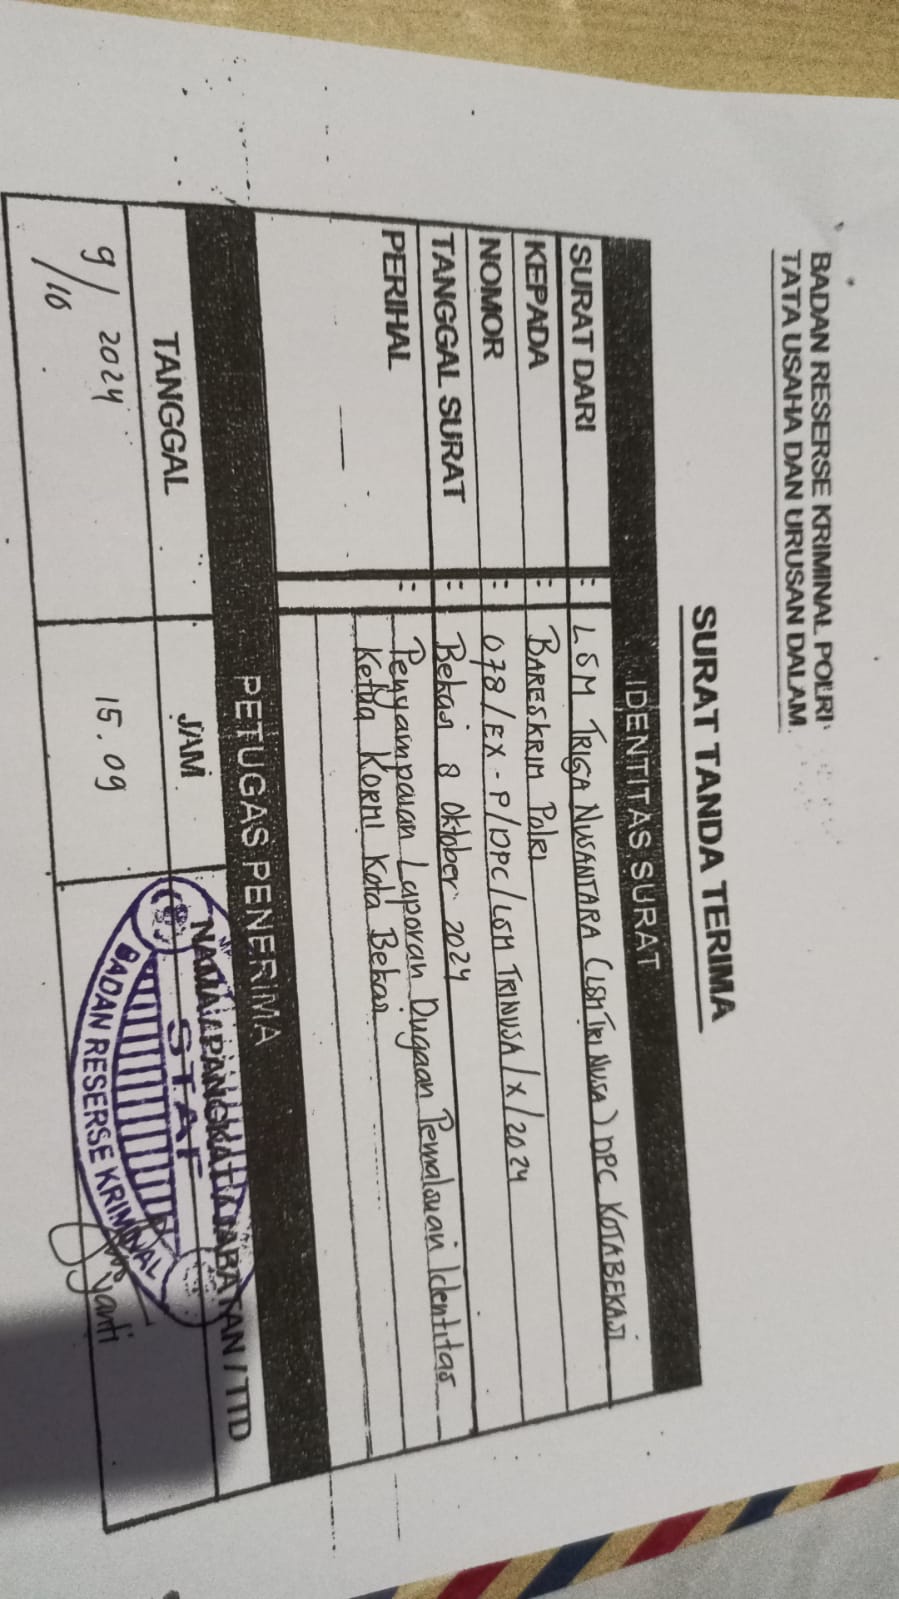 BADAN RESERSE KRIMINAL POLRI
TATA USAHA DAN URUSAN DALAM
SURAT TANDA TERIMA
IDENTITAS SURAT
SURAT DARI : LSM TRIGA NUSANTARA (LSM TRI NUSA) DPC KOTA BEKASI
KEPADA : BARESKRIM POLRI
NOMOR : 078/EX-P/DPC/LSM TRINUSA/X/2024
TANGGAL SURAT : Bekasi 8 Oktober 2024
PERIHAL : Penyampaian Laporan Dugaan Pemalsuan Identitas
Ketua KORMI Kota Bekasi
PETUGAS PENERIMA
TANGGAL JAM NAMA/PANGKAT/JABATAN/TTD
9/10 2024 15.09
STAF
BADAN RESERSE KRIMINAL
yanti